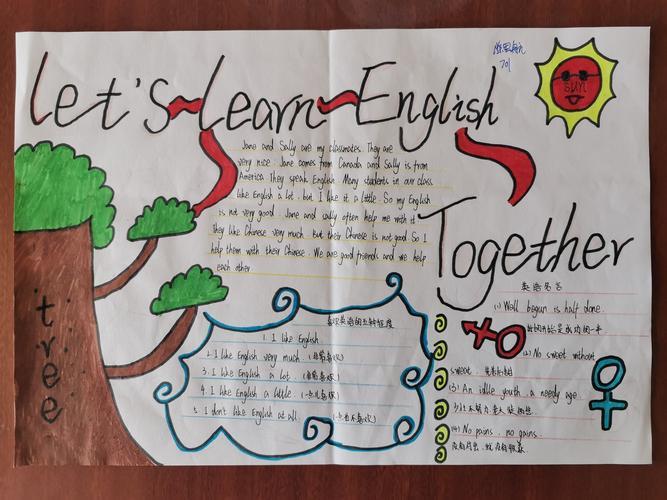 Let's Learn English
Together
701
sun
tree
Jane and Sally are my classmates. They are
very nice. Jane comes from Canada and Sally is from
America They speak English. Many students in our class
like English a lot. but I like it a little. So my English
is not very good. Jane and sally often help me with it
they like Chinese very much. but their Chinese is not good So I
help them with their Chinese. We are good friends and we help
each other.
喜欢英语的五种程度
1. I like English
2. I like English very much. (非常喜欢)
3. I like English a lot. (非常喜欢)
4. I like English a little. (一点儿喜欢)
5. I don't like English at all. (一点也不喜欢)
英语名言
(1) Well begun is half done.
好的开始是成功的一半
(2) No sweet without
sweat.
(3) An idle youth, a needy age.
(4) No pains, no gains.